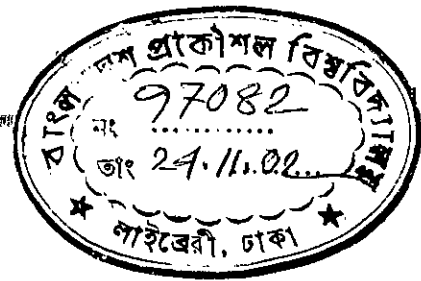 বাংলাদেশ প্রকৌশল বিশ্ববিদ্যালয়
নং 97082
তাং 24.11.02
লাইব্রেরী, ঢাকা